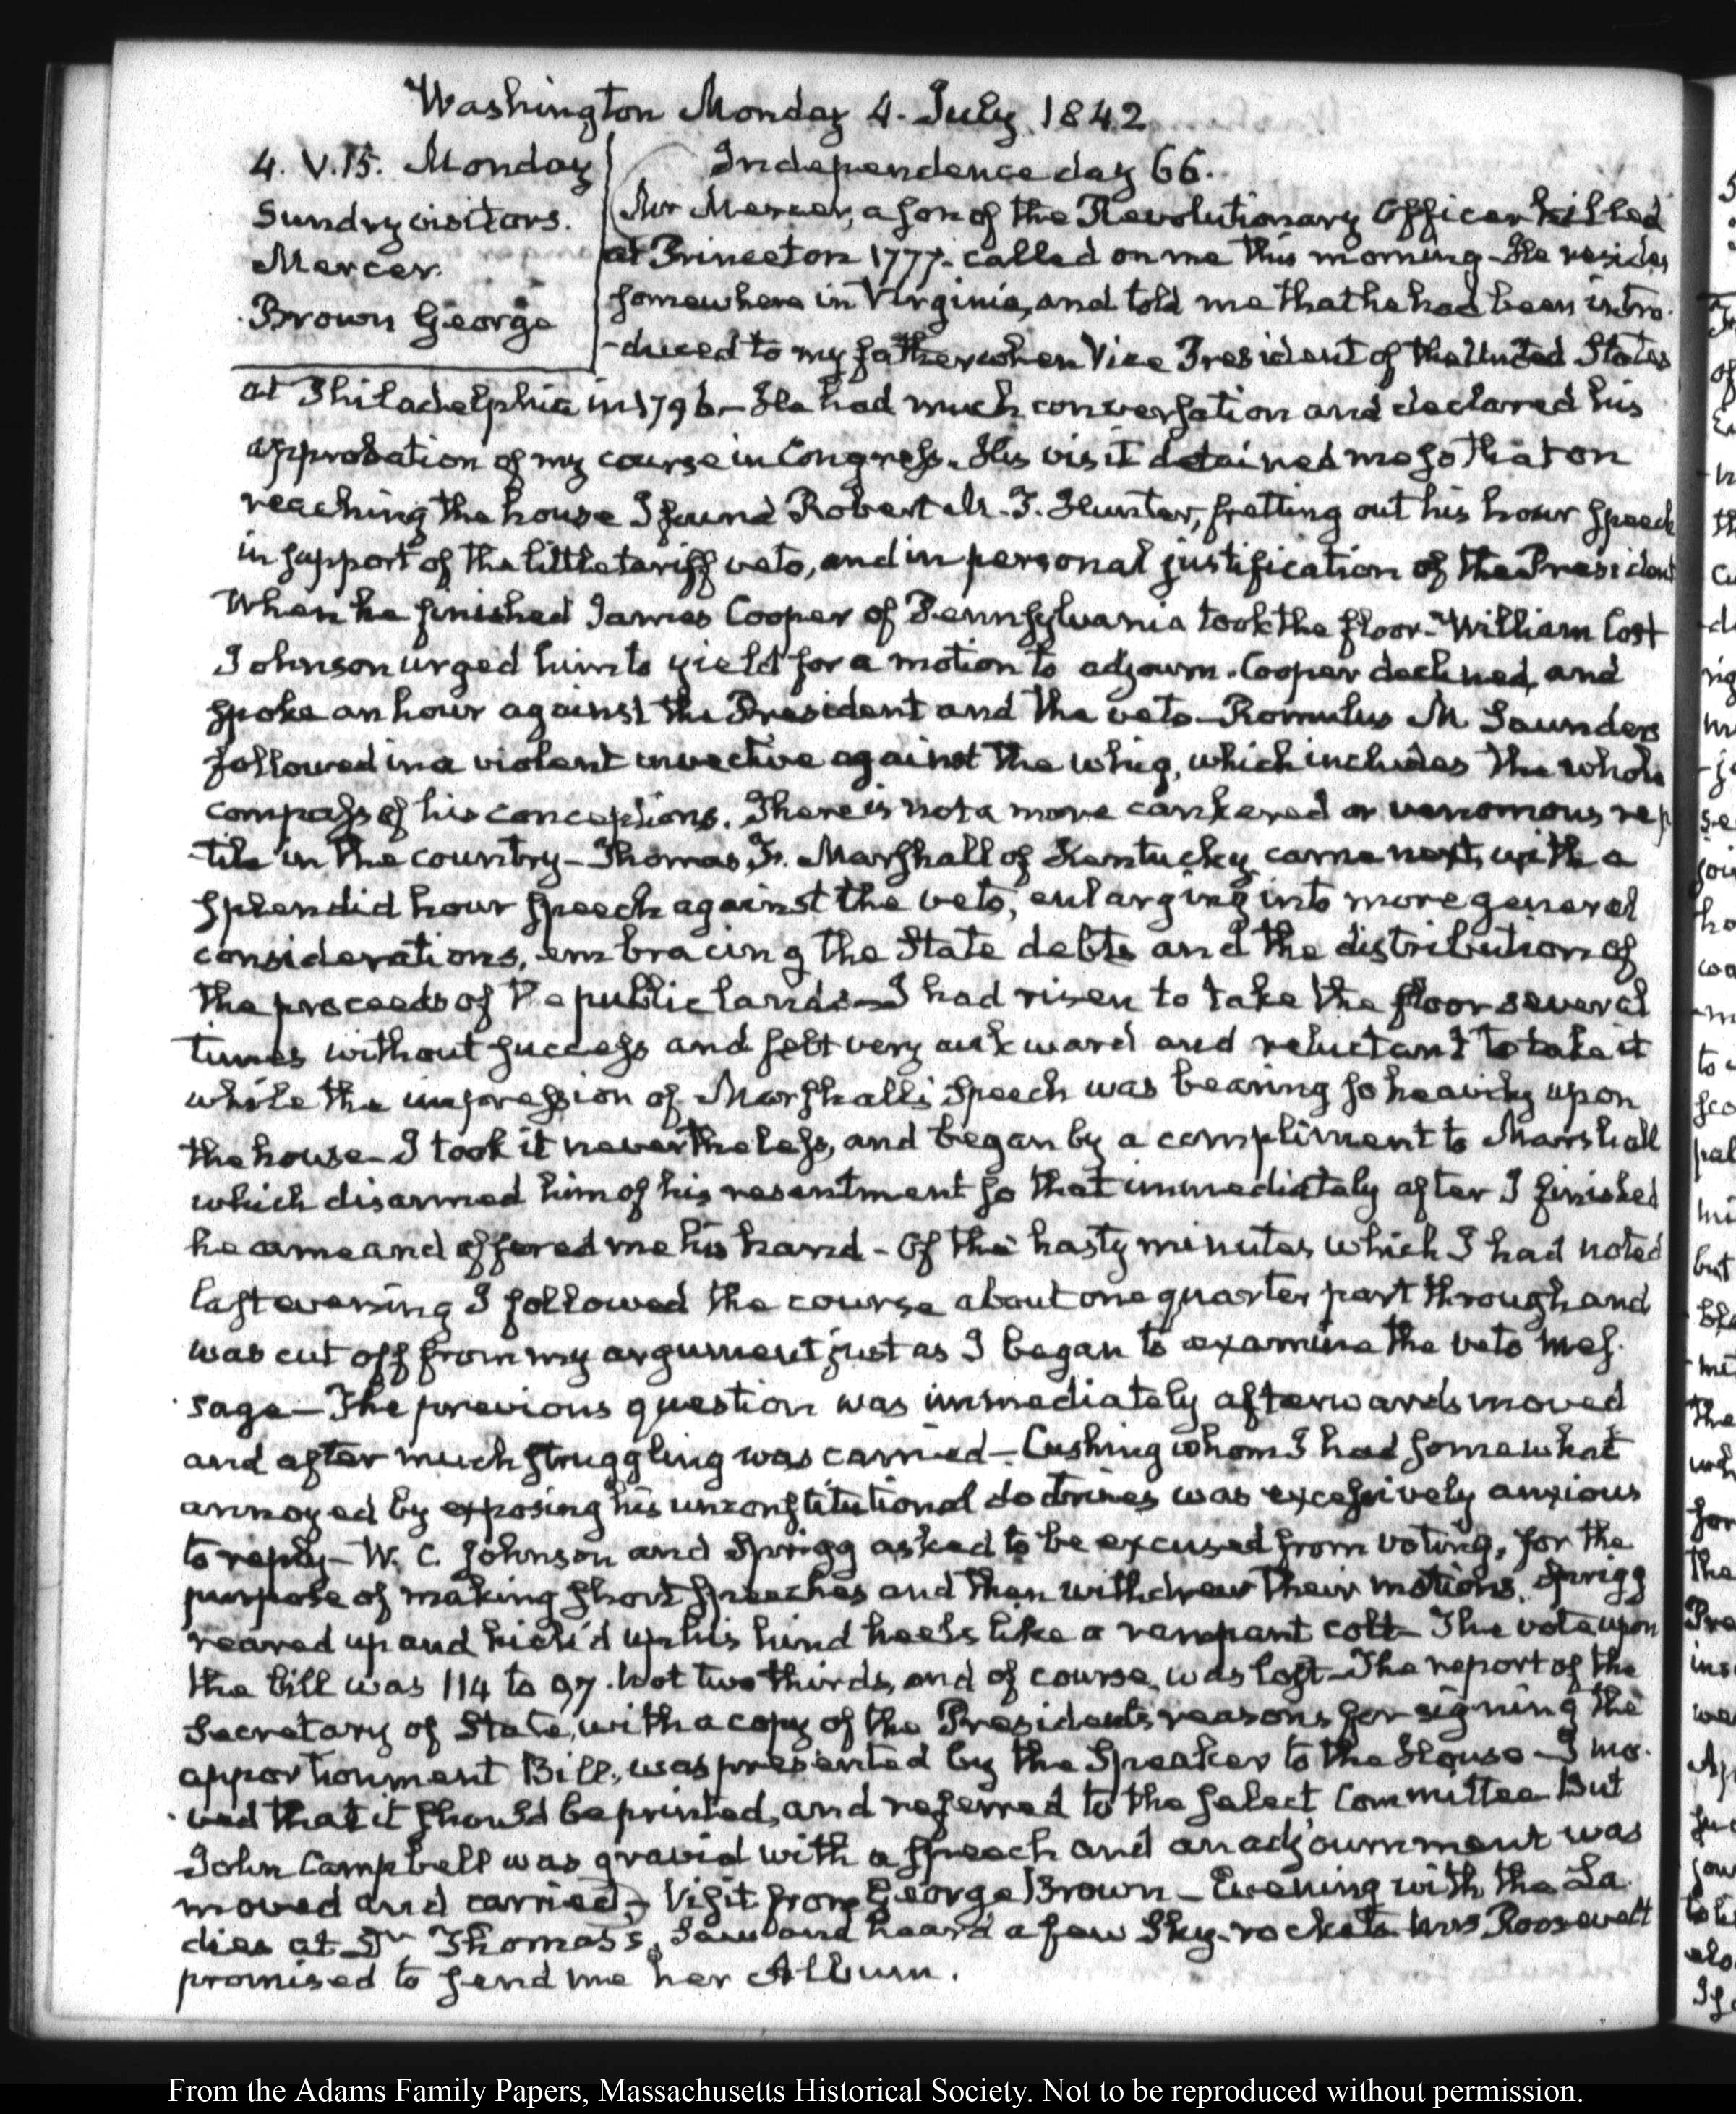 Washington Monday 4. July 1842
4. V.15. Monday
Sundry visitors.
Mercer.
Brown George
Independence day 66.
Mr Mercer, a son of the Revolutionary Officer killed
at Princeton 1777. called on me this morning - He resides
somewhere in Virginia, and told me that he had been intro-
-duced to my father when Vice President of the United States
at Philadelphia in 1796 - He had much conversation and declared his
approbation of my course in Congress. His visit detained me so that on
reaching the house I found Robert M. T. Hunter, fretting out his hour speech
in support of the little tariff veto, and in personal justification of the President
When he finished James Cooper of Pennsylvania took the floor - William Cost
Johnson urged him to yield for a motion to adjourn. Cooper declined, and
spoke an hour against the President and the veto - Romulus M Saunders
followed in a violent invective against the whig, which includes the whole
compass of his conceptions. There is not a more cankered or venomous rep
-tile in the country - Thomas F. Marshall of Kentucky came next, with a
splendid hour speech against the veto, enlarging into more general
considerations, embracing the State debts and the distribution of
the proceeds of the public lands - I had risen to take the floor several
times without success and felt very awkward and reluctant to take it
while the impression of Marshall's Speech was bearing so heavily upon
the house - I took it nevertheless, and began by a compliment to Marshall
which disarmed him of his resentment so that immediately after I finished
he came and offered me his hand - Of the hasty minutes which I had noted
last evening I followed the course about one quarter part through and
was cut off from my argument just as I began to examine the veto mes-
-sage - The previous question was immediately afterwards moved
and after much struggling was carried - Cushing whom I had somewhat
annoyed by exposing his unconstitutional doctrines was excessively anxious
to reply - W. C. Johnson and Sprigg asked to be excused from voting, for the
purpose of making short speeches and then withdrew their motions. Sprigg
reared up and kick'd up his hind heels like a rampant colt - The vote upon
the bill was 114 to 97. Not two thirds, and of course, was lost - The report of the
Secretary of State, with a copy of the President's reasons for signing the
apportionment Bill, was presented by the Speaker to the House - I mo-
-ved that it should be printed, and referred to the select Committee But
John Campbell was gravid with a speech and an adjournment was
moved and carried, - Visit from George Brown - Evening with the La-
dies at Dr. Thomas's, Saw and heard a few Sky-rockets Mrs Roosevelt
promised to send me her Album.
From the Adams Family Papers, Massachusetts Historical Society. Not to be reproduced without permission.